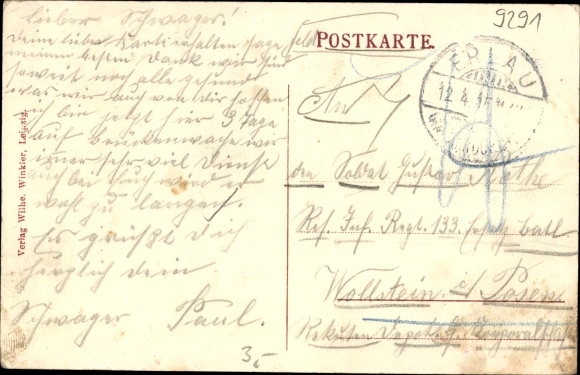 9291
Lieber Schwager!
Deine liebe Karte erhalten sage
meinen besten Dank wir sind
soweit noch alle gesund
was wir auch von Dir hoffen
ich bin jetzt 3 Tage
auf Brückenwache wir
immer sehr viel Dienst
auch bei Euch wird es
wohl zu langen.
Es grüßt Dich
herzlich dein
Schwager Paul.
3,-
Verlag Wilhe. Winkler, Leipzig.
Feld
POSTKARTE.
ERLAU
12.4.1
An
den Soldat Gustav
Res. Inf. Regt. 133. Batl.
Wollstein i/ Posen
Rekruten Depot